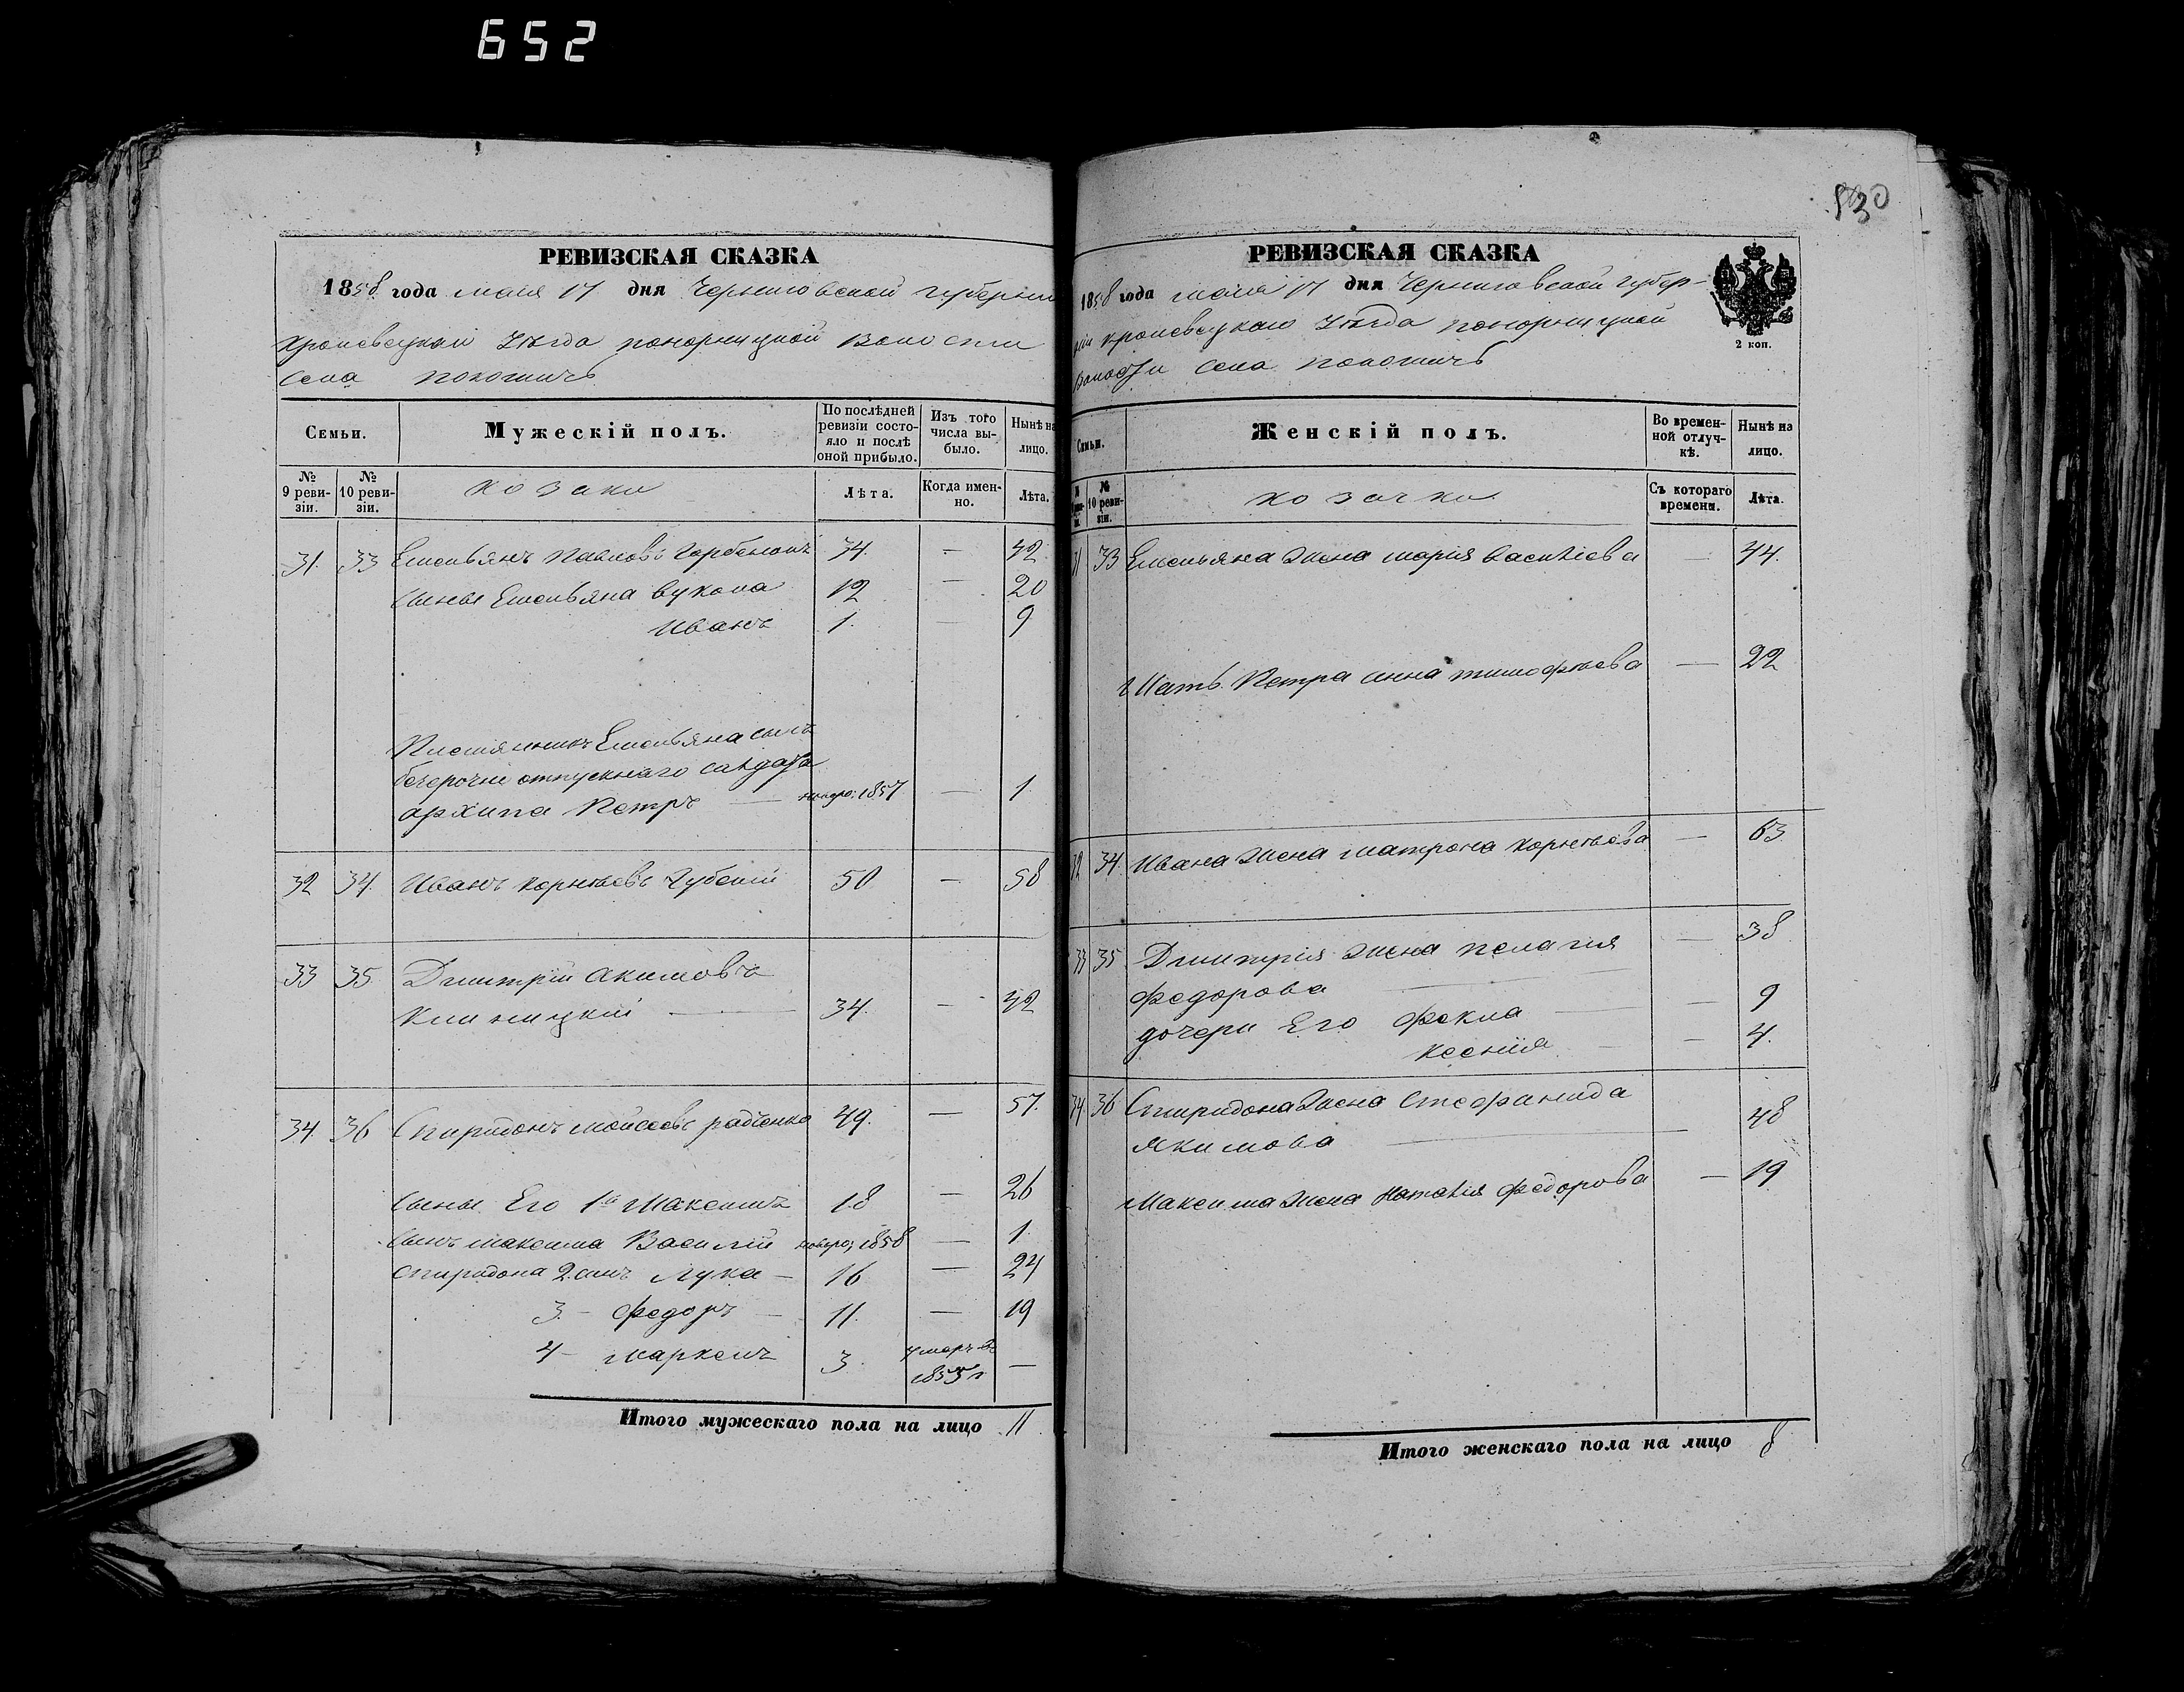 652
530
РЕВИЗСКАЯ СКАЗКА
1858 года мая 17 дня Черниговской губерніи
Кролевецкаго Уѣзда понорницкой Волости
Села покошичь
Семьи.
Мужескій полъ.
По послѣдней ревизіи состояло и послѣ оной прибыло.
Изъ того числа выбыло.
Нынѣ на лицо.
№ 9 ревизіи.
№ 10 ревизіи.
козаки
Лѣта.
Когда именно.
Лѣта.
31. 33 Емельянъ Павловъ Горбенокъ 34. — 42
Сыны Емельяна Вукола 12 — 20
Иванъ 1. — 9
Племянникъ Емельяна сынъ
безсрочно отпускнаго салдата
архипа Петръ — новоро: 1857 — 1
32 34. Иванъ Корнѣевъ Губскій 50 — 58
33 35 Дмитрій Акимовъ
Клиницкій — 34. — 42
34. 36 Спиридонъ Мойсеевъ радченко 49. — 57.
Сыны Его 1й Максимъ 18 — 26
Сынъ максима Василій новоро; 1858 — 1
Спиридона 2. сынъ Лука — 16 — 24
3 - Федоръ — 11. — 19
4 - Маркелъ 3. умеръ въ 1855 г —
Итого мужескаго пола на лицо 11
РЕВИЗСКАЯ СКАЗКА
1858 года мая 17 дня Черниговской губер-
ніи кролевецкаго Уѣзда понорницкой
Волости села покошичь
2 коп.
Семьи.
Женскій полъ.
Во временной отлучкѣ.
Нынѣ на лицо.
№ 10 ревизіи.
козачки
Съ котораго времени.
Лѣта.
31 33 Емельяна жена марія Василіева — 44.
Мать Петра анна тимофѣева — 22
32 34. Ивана жена матрона Корнѣева — 63
33 35 Дмитрія жена пелагія — 38
Федорова —
дочери Его Фекла — 9
Ксенія — 4.
34. 36 Спиридона жена Стефанида 48
Якимова —
Максима жена Наталія Федорова — 19
Итого женскаго пола на лицо 8